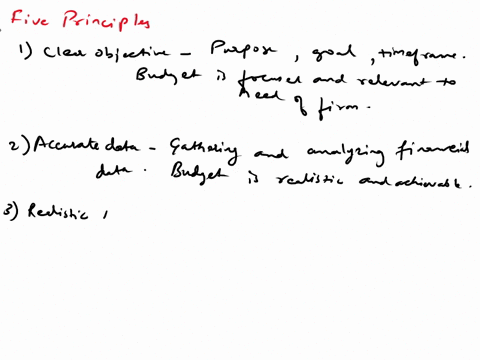 Five Principles
1) Clear objective - Purpose, goal, timeframe.
Budget is focused and relevant to
need of firm.
2) Accurate data - Gathering and analyzing financial
data. Budget is realistic and achievable.
3) Realistic